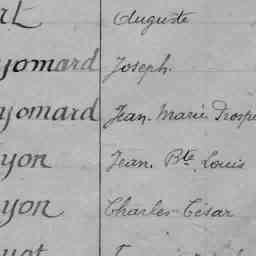 rt Auguste
yomard Joseph.
yomard Jean. Marie. Prospe
yon Jean. Bte. Louis
yon Charles-César
yot